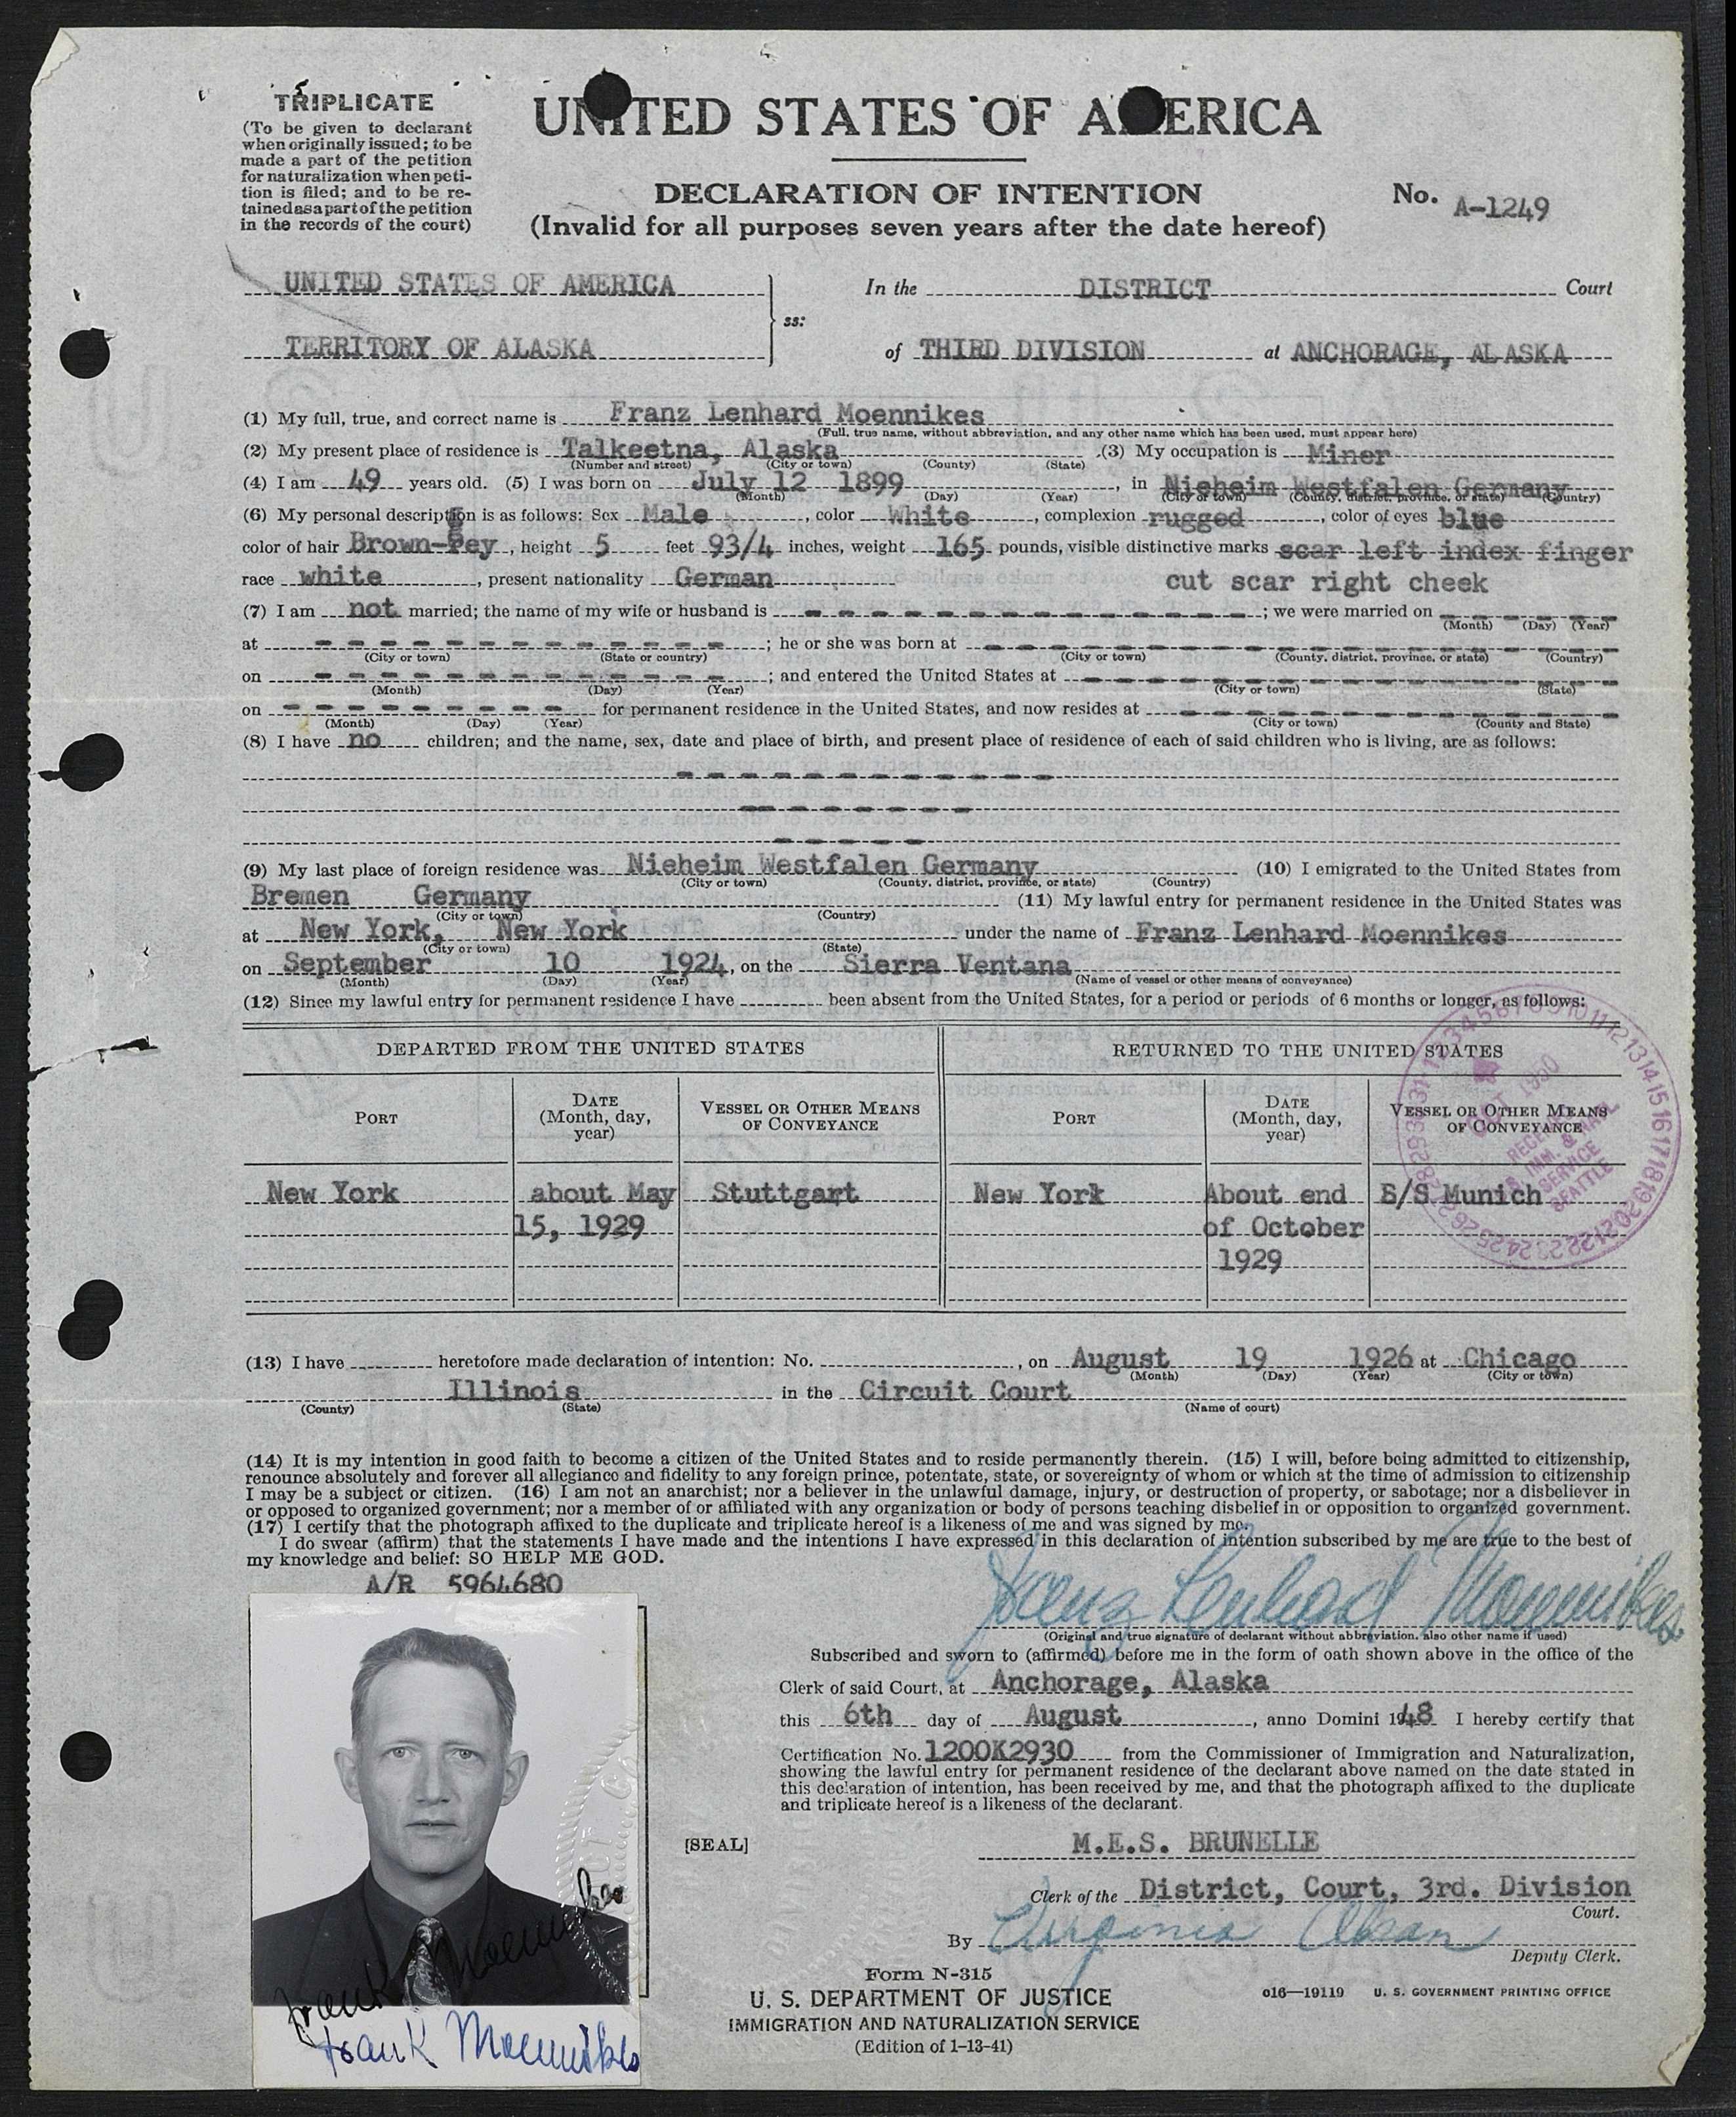 TRIPLICATE
(To be given to declarant
when originally issued; to be
made a part of the petition
for naturalization when peti-
tion is filed; and to be re-
tained as a part of the petition
in the records of the court)
UNITED STATES OF AMERICA
DECLARATION OF INTENTION
(Invalid for all purposes seven years after the date hereof)
No. A-1249
UNITED STATES OF AMERICA
TERRITORY OF ALASKA
ss:
In the DISTRICT Court
of THIRD DIVISION at ANCHORAGE, ALASKA
(1) My full, true, and correct name is Franz Lenhard Moennikes
(Full, true name, without abbreviation, and any other name which has been used, must appear here)
(2) My present place of residence is Talkeetna, Alaska (3) My occupation is Miner
(Number and street) (City or town) (County) (State)
(4) I am 49 years old. (5) I was born on July 12 1899, in Nieheim Westfalen Germany
(Month) (Day) (Year) (City or town) (County, district, province, or state) (Country)
(6) My personal description is as follows: Sex Male, color White, complexion rugged, color of eyes blue
color of hair Brown-gey, height 5 feet 93/4 inches, weight 165 pounds, visible distinctive marks scar left index finger
race white, present nationality German cut scar right cheek
(7) I am not married; the name of my wife or husband is ; we were married on
(Month) (Day) (Year)
at ; he or she was born at
(City or town) (State or country) (City or town) (County, district, province, or state) (Country)
on ; and entered the United States at
(Month) (Day) (Year) (City or town) (State)
on for permanent residence in the United States, and now resides at
(Month) (Day) (Year) (City or town) (County and State)
(8) I have no children; and the name, sex, date and place of birth, and present place of residence of each of said children who is living, are as follows:
(9) My last place of foreign residence was Nieheim Westfalen Germany (10) I emigrated to the United States from
(City or town) (County, district, province, or state) (Country)
Bremen Germany (11) My lawful entry for permanent residence in the United States was
(City or town) (Country)
at New York, New York under the name of Franz Lenhard Moennikes
(City or town) (State)
on September 10 1924, on the Sierra Ventana
(Month) (Day) (Year) (Name of vessel or other means of conveyance)
(12) Since my lawful entry for permanent residence I have been absent from the United States, for a period or periods of 6 months or longer, as follows:
DEPARTED FROM THE UNITED STATES RETURNED TO THE UNITED STATES
PORT DATE (Month, day, year) VESSEL OR OTHER MEANS OF CONVEYANCE PORT DATE (Month, day, year) VESSEL OR OTHER MEANS OF CONVEYANCE
New York about May Stuttgart New York About end S/S Munich
15, 1929 of October
1929
1950
RECEIVED
IMM. & NAT.
SERVICE
SEATTLE
(13) I have heretofore made declaration of intention: No. , on August 19 1926 at Chicago
(Month) (Day) (Year) (City or town)
Illinois in the Circuit Court
(County) (State) (Name of court)
(14) It is my intention in good faith to become a citizen of the United States and to reside permanently therein. (15) I will, before being admitted to citizenship,
renounce absolutely and forever all allegiance and fidelity to any foreign prince, potentate, state, or sovereignty of whom or which at the time of admission to citizenship
I may be a subject or citizen. (16) I am not an anarchist; nor a believer in the unlawful damage, injury, or destruction of property, or sabotage; nor a disbeliever in
or opposed to organized government; nor a member of or affiliated with any organization or body of persons teaching disbelief in or opposition to organized government.
(17) I certify that the photograph affixed to the duplicate and triplicate hereof is a likeness of me and was signed by me.
I do swear (affirm) that the statements I have made and the intentions I have expressed in this declaration of intention subscribed by me are true to the best of
my knowledge and belief: SO HELP ME GOD.
A/R 5964680
Franz Lenhard Moennikes
(Original and true signature of declarant without abbreviation, also other name if used)
Subscribed and sworn to (affirmed) before me in the form of oath shown above in the office of the
Clerk of said Court, at Anchorage, Alaska
this 6th day of August, anno Domini 1948 I hereby certify that
Certification No. 1200K2930 from the Commissioner of Immigration and Naturalization,
showing the lawful entry for permanent residence of the declarant above named on the date stated in
this declaration of intention, has been received by me, and that the photograph affixed to the duplicate
and triplicate hereof is a likeness of the declarant.
[SEAL]
M.E.S. BRUNELLE
Clerk of the District, Court, 3rd. Division
Court.
By Virginia Olsan
Deputy Clerk.
Frank Moennikes
Frank Moennikes
Form N-315
U. S. DEPARTMENT OF JUSTICE
IMMIGRATION AND NATURALIZATION SERVICE
(Edition of 1-13-41)
o16—19119 U. S. GOVERNMENT PRINTING OFFICE